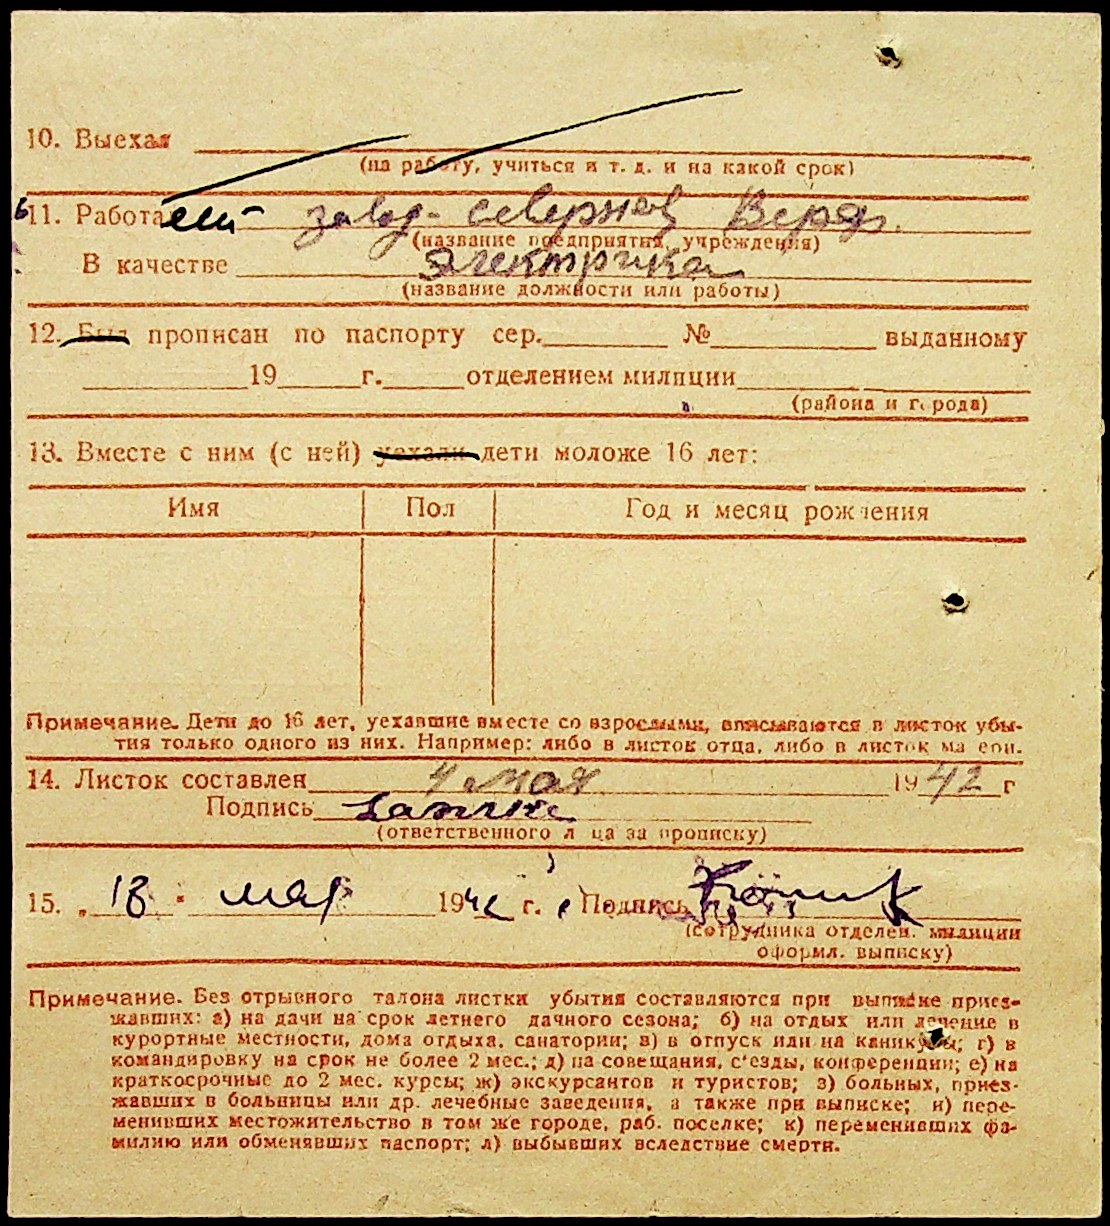 10. Выехал
(на работу, учиться и т. д. и на какой срок)
11. Работает завод- северная Верфь.
(название предприятия, учреждения)
В качестве электрика
(название должности или работы)
12. Был прописан по паспорту сер. № выданному
19 г. отделением милиции
(района и города)
13. Вместе с ним (с ней) уехали дети моложе 16 лет:
Имя Пол Год и месяц рождения
Примечание. Дети до 16 лет, уехавшие вместе со взрослыми, вписываются в листок убы-
тия только одного из них. Например: либо в листок отца, либо в листок матери.
14. Листок составлен 4 мая 1942 г
Подпись
(ответственного лица за прописку)
15. 18 мая 1942 г. Подпись
(сотрудника отделен. милиции
оформл. выписку)
Примечание. Без отрывного талона листки убытия составляются при выписке приез-
жавших: а) на дачи на срок летнего дачного сезона; б) на отдых или лечение в
курортные местности, дома отдыха, санатории; в) в отпуск или на каникулы; г) в
командировку на срок не более 2 мес.; д) на совещания, с'езды, конференции; е) на
краткосрочные до 2 мес. курсы; ж) экскурсантов и туристов; з) больных, приез-
жавших в больницы или др. лечебные заведения, а также при выписке; и) пере-
менивших местожительство в том же городе, раб. поселке; к) переменивших фа-
милию или обменявших паспорт; л) выбывших вследствие смерти.